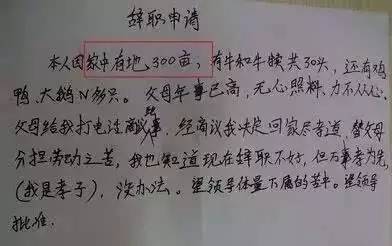 辞职申请
本人因家中有地300亩，有牛和牛犊共30头，还有鸡
鸭、大鹅N多只。父母年事已高，无心照料，力不从心。
父母给我打电话商议此事，经商议我决定回家尽孝道，替父母
分担劳动之苦，我也知道现在辞职不好，但万事孝为先
(我是孝子)，没办法。望领导体量下属的苦中。望领导
批准.